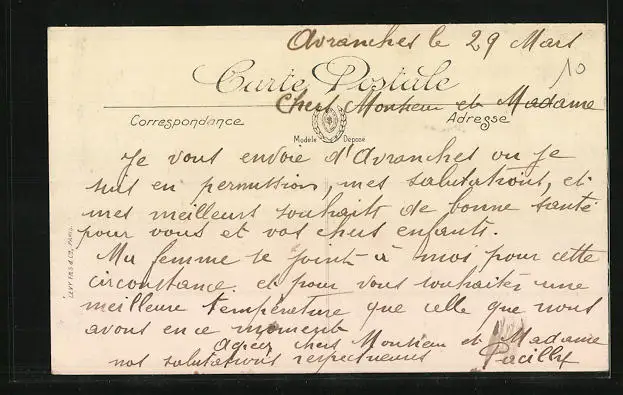 Avranches le 29 Mars
10
Carte Postale
Chers Monsieur et Madame
Correspondance
Adresse
Modèle Déposé
Je vous envoie d'Avranches ou je
suis en permission, mes salutations, et
mes meilleurs souhaits de bonne santé
pour vous et vos chers enfants.
Ma femme se joint à moi pour cette
circonstance. et pour vous souhaiter une
meilleure température que celle que nous
avons en ce moment
Agréez chers Monsieur et Madame
nos salutations respectueuses
Pacilly
LEVY FILS & Cie, PARIS